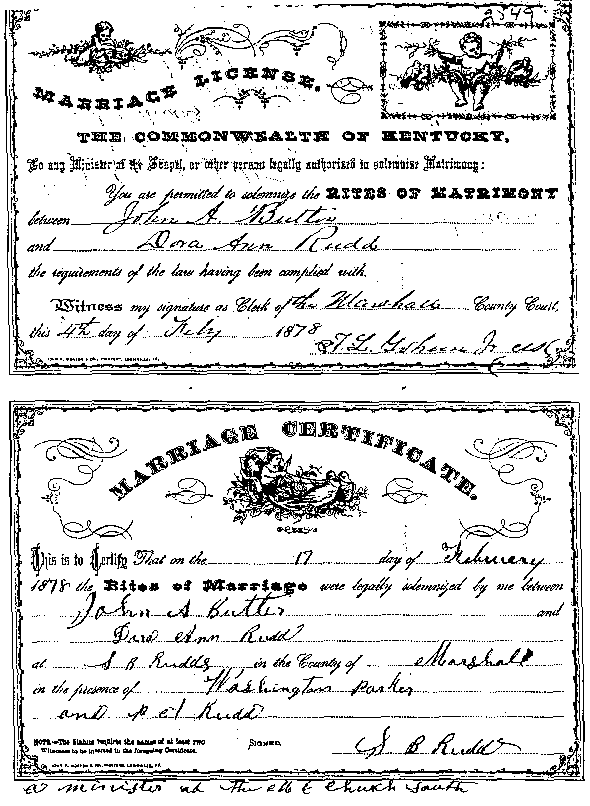 2349
MARRIAGE LICENSE.
THE COMMONWEALTH OF KENTUCKY,
To any Minister of the Gospel, or other person legally authorized to solemnize Matrimony:
You are permitted to solemnize the RITES OF MATRIMONY
between John A. Butler
and Dora Ann Rudd
the requirements of the law having been complied with.
Witness my signature as Clerk of the Marshall County Court,
this 4th day of Feby 1878
T. L. Goheen Jr
MARRIAGE CERTIFICATE.
This is to Certify That on the 17 day of February
1878 the Rites of Marriage were legally solemnized by me between
John A Butler and
Dora Ann Rudd
at S B Rudds in the County of Marshall
in the presence of Washington Parker
and Rudd
NOTE.—The Statute requires the names of at least two Witnesses to be inserted in the foregoing Certificate.
SIGNED,
S B Rudd
a minister of the M E Church South